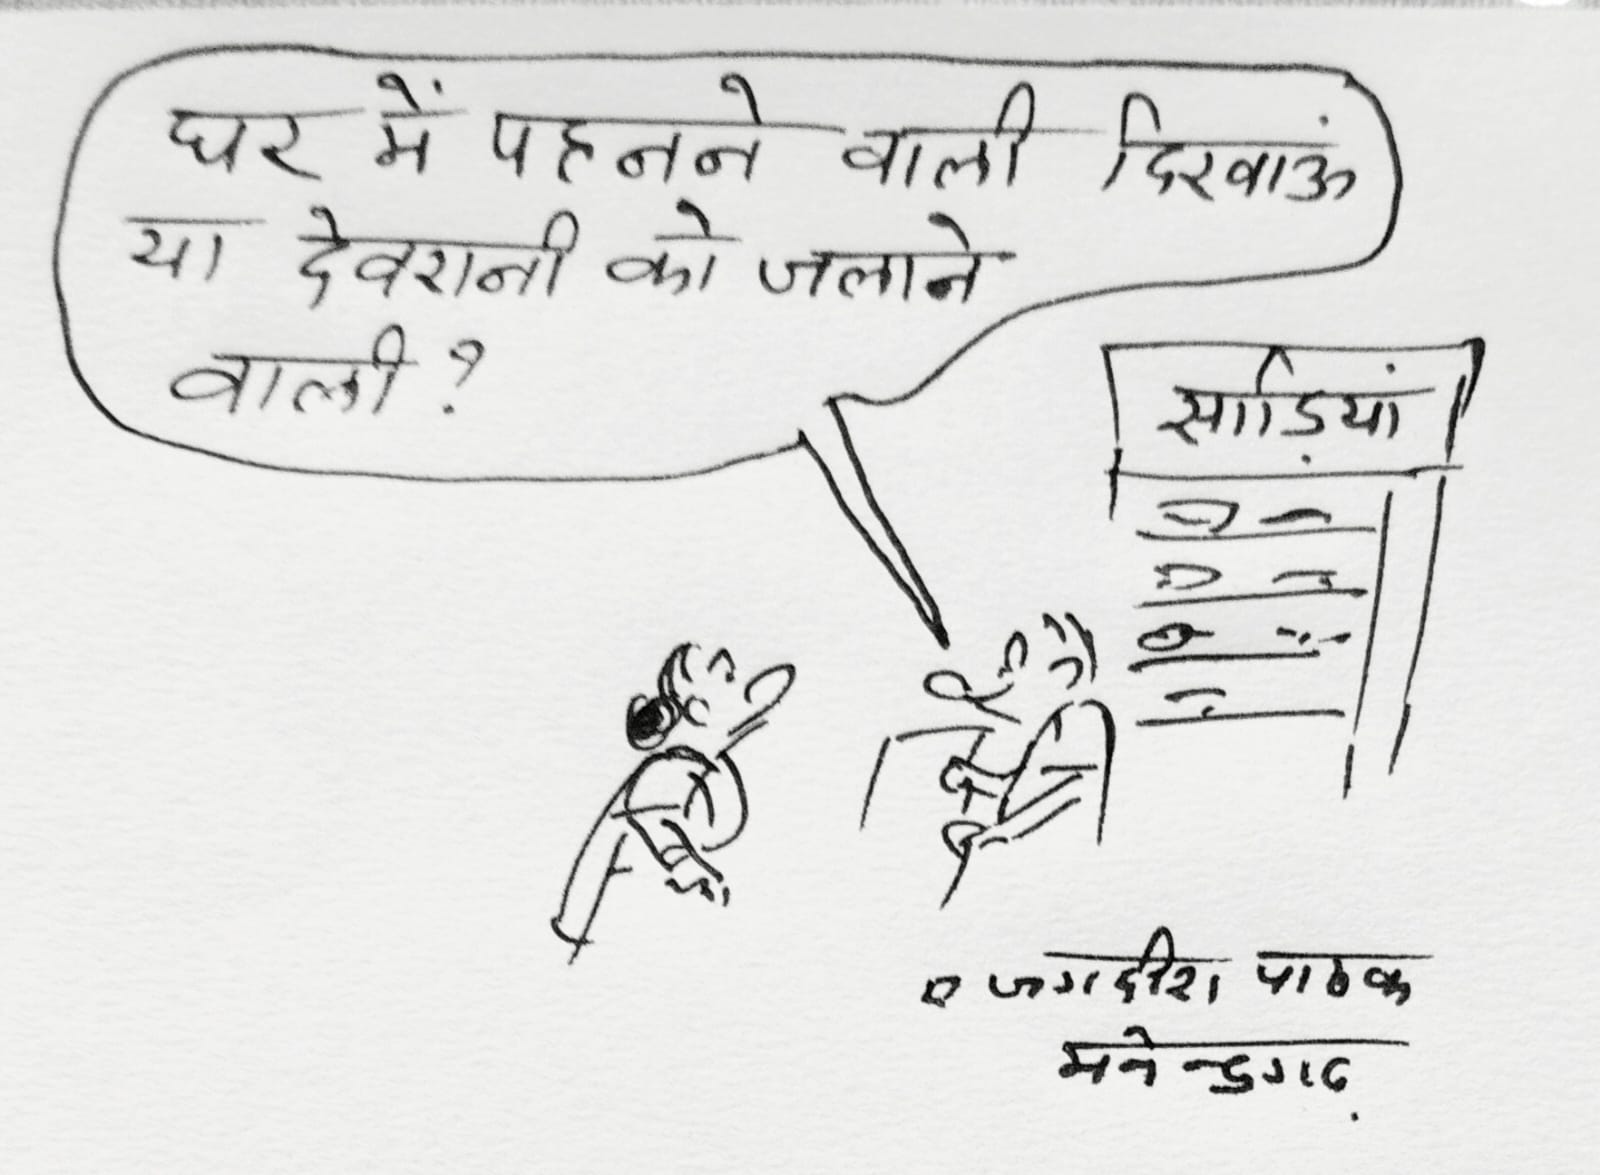 घर में पहनने वाली दिखाऊं
या देवरानी को जलाने
वाली?
साड़ियां
जगदीश पाठक
मनेन्द्रगढ़